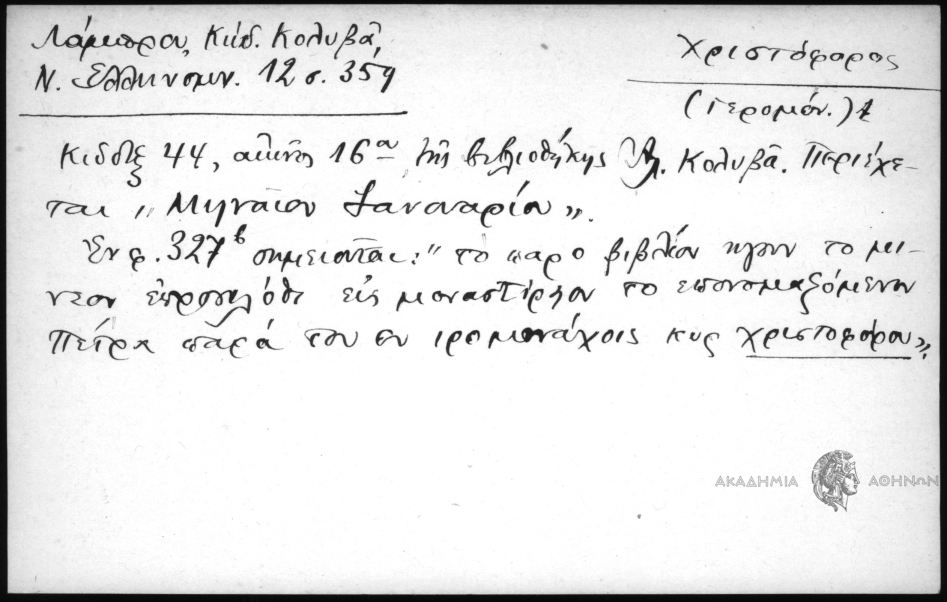 Λάμπρου, Κώδ. Κολυβᾶ,
Ν. Ἑλληνομν. 12 σ. 359
Χριστόφορος
(Ἱερομόν.) 1
Κώδιξ 44, αἰῶνος 16ου τῆς βιβλιοθήκης Ἀλ. Κολυβᾶ. Περιέχε-
ται „Μηναῖον Ἰανουαρίου".
Ἐν φ. 327β σημειοῦται: "τὸ παρὸ βιβλίον ηγουν το μι-
νεον ἐπροσιλόθι εἰς μοναστίριον το επονομαζόμενον
Πέτρα παρά του εν ιρομονάχοις κυρ Χριστοφόρου".
ΑΚΑΔΗΜΙΑ ΑΘΗΝΩΝ